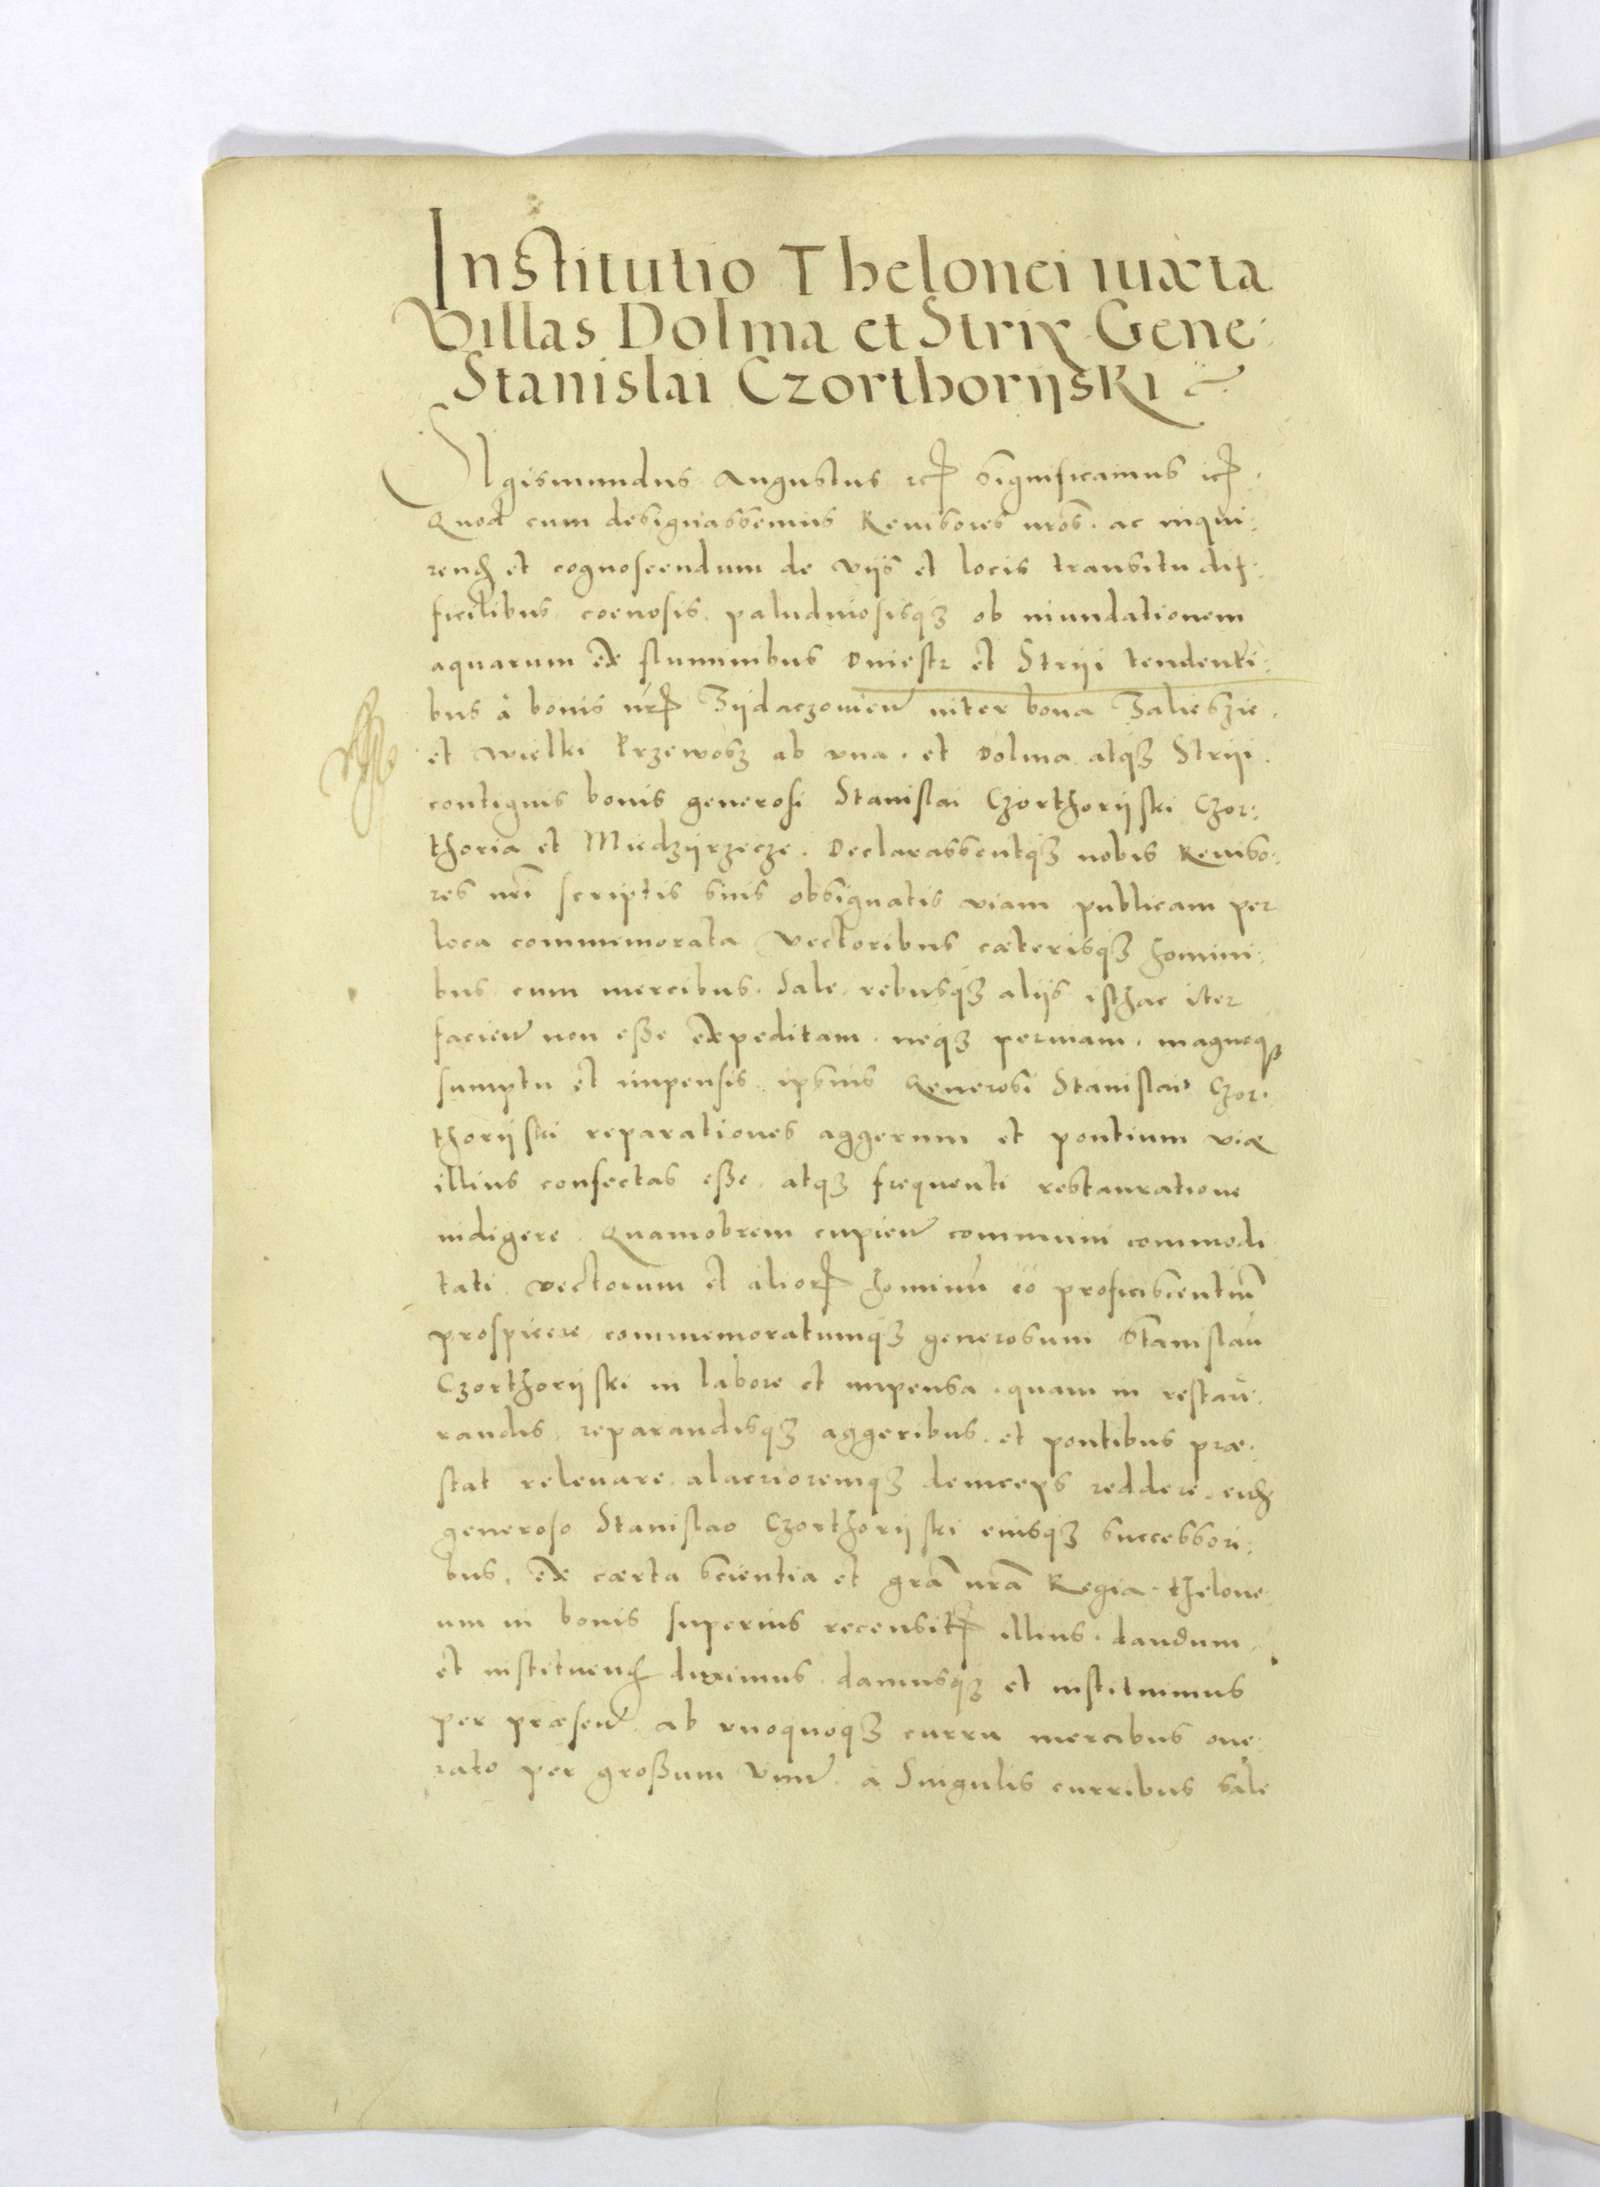 Institutio Thelonei iuxta
Villas Dolma et Strix Gene:
Stanislai Czorthorijski
Sigismundus Augustus etc Significamus etc.
Quod cum designassemus Reuisores nros. ac inqui:
rend et cognoscendum de vijs et locis transitu dif:
ficilibus coenosis. paludinosisq3 ob inundationem
aquarum ex fluminibus Dniestr et Striji tendenti:
bus à bonis nris Zijdaczouien inter bona Zalieszie.
et Wielki krzewosz ab vna. et Dolma atq3 Striji.
contiguis bonis generosi Stanislai Czorthorijski Czor:
thoria et Miedzijrzecze. Declarassentq3 nobis Reuiso:
res nri scriptis suis obsignatis viam publicam per
loca commemorata Vectoribus cæterisq3 homini:
bus cum mercibus. Sale. rebusq3 alijs isthac iter
facien non esse expeditam. neq3 peruiam. magnoq3
sumptu et impensis ipsius Generosi Stanislai Czor:
thorijski reparationes aggerum et pontium viæ
illius confectas esse. atq3 frequenti restauratione
indigere. Quamobrem cupien communi commodi
tati. Vectorum et alior hominū eò proficiscentiū
prospicere commemoratumq3 generosum Stanislaū
Czorthorijski in labore et impensa. quam in restau:
randis. reparandisq3 aggeribus. et pontibus præ:
stat releuare. alacrioremq3 deinceps reddere. eid
generoso Stanislao Czorthorijski eiusq3 successori:
bus. ex cærta scientia et grã nrã Regia. thelone
um in bonis superius recensit illius. dandum
et instituend duximus. damusq3 et instituimus
per præsen. ab vnoquoq3 curru mercibus one:
rato per grossum Vnum. à Singulis curribus Sale